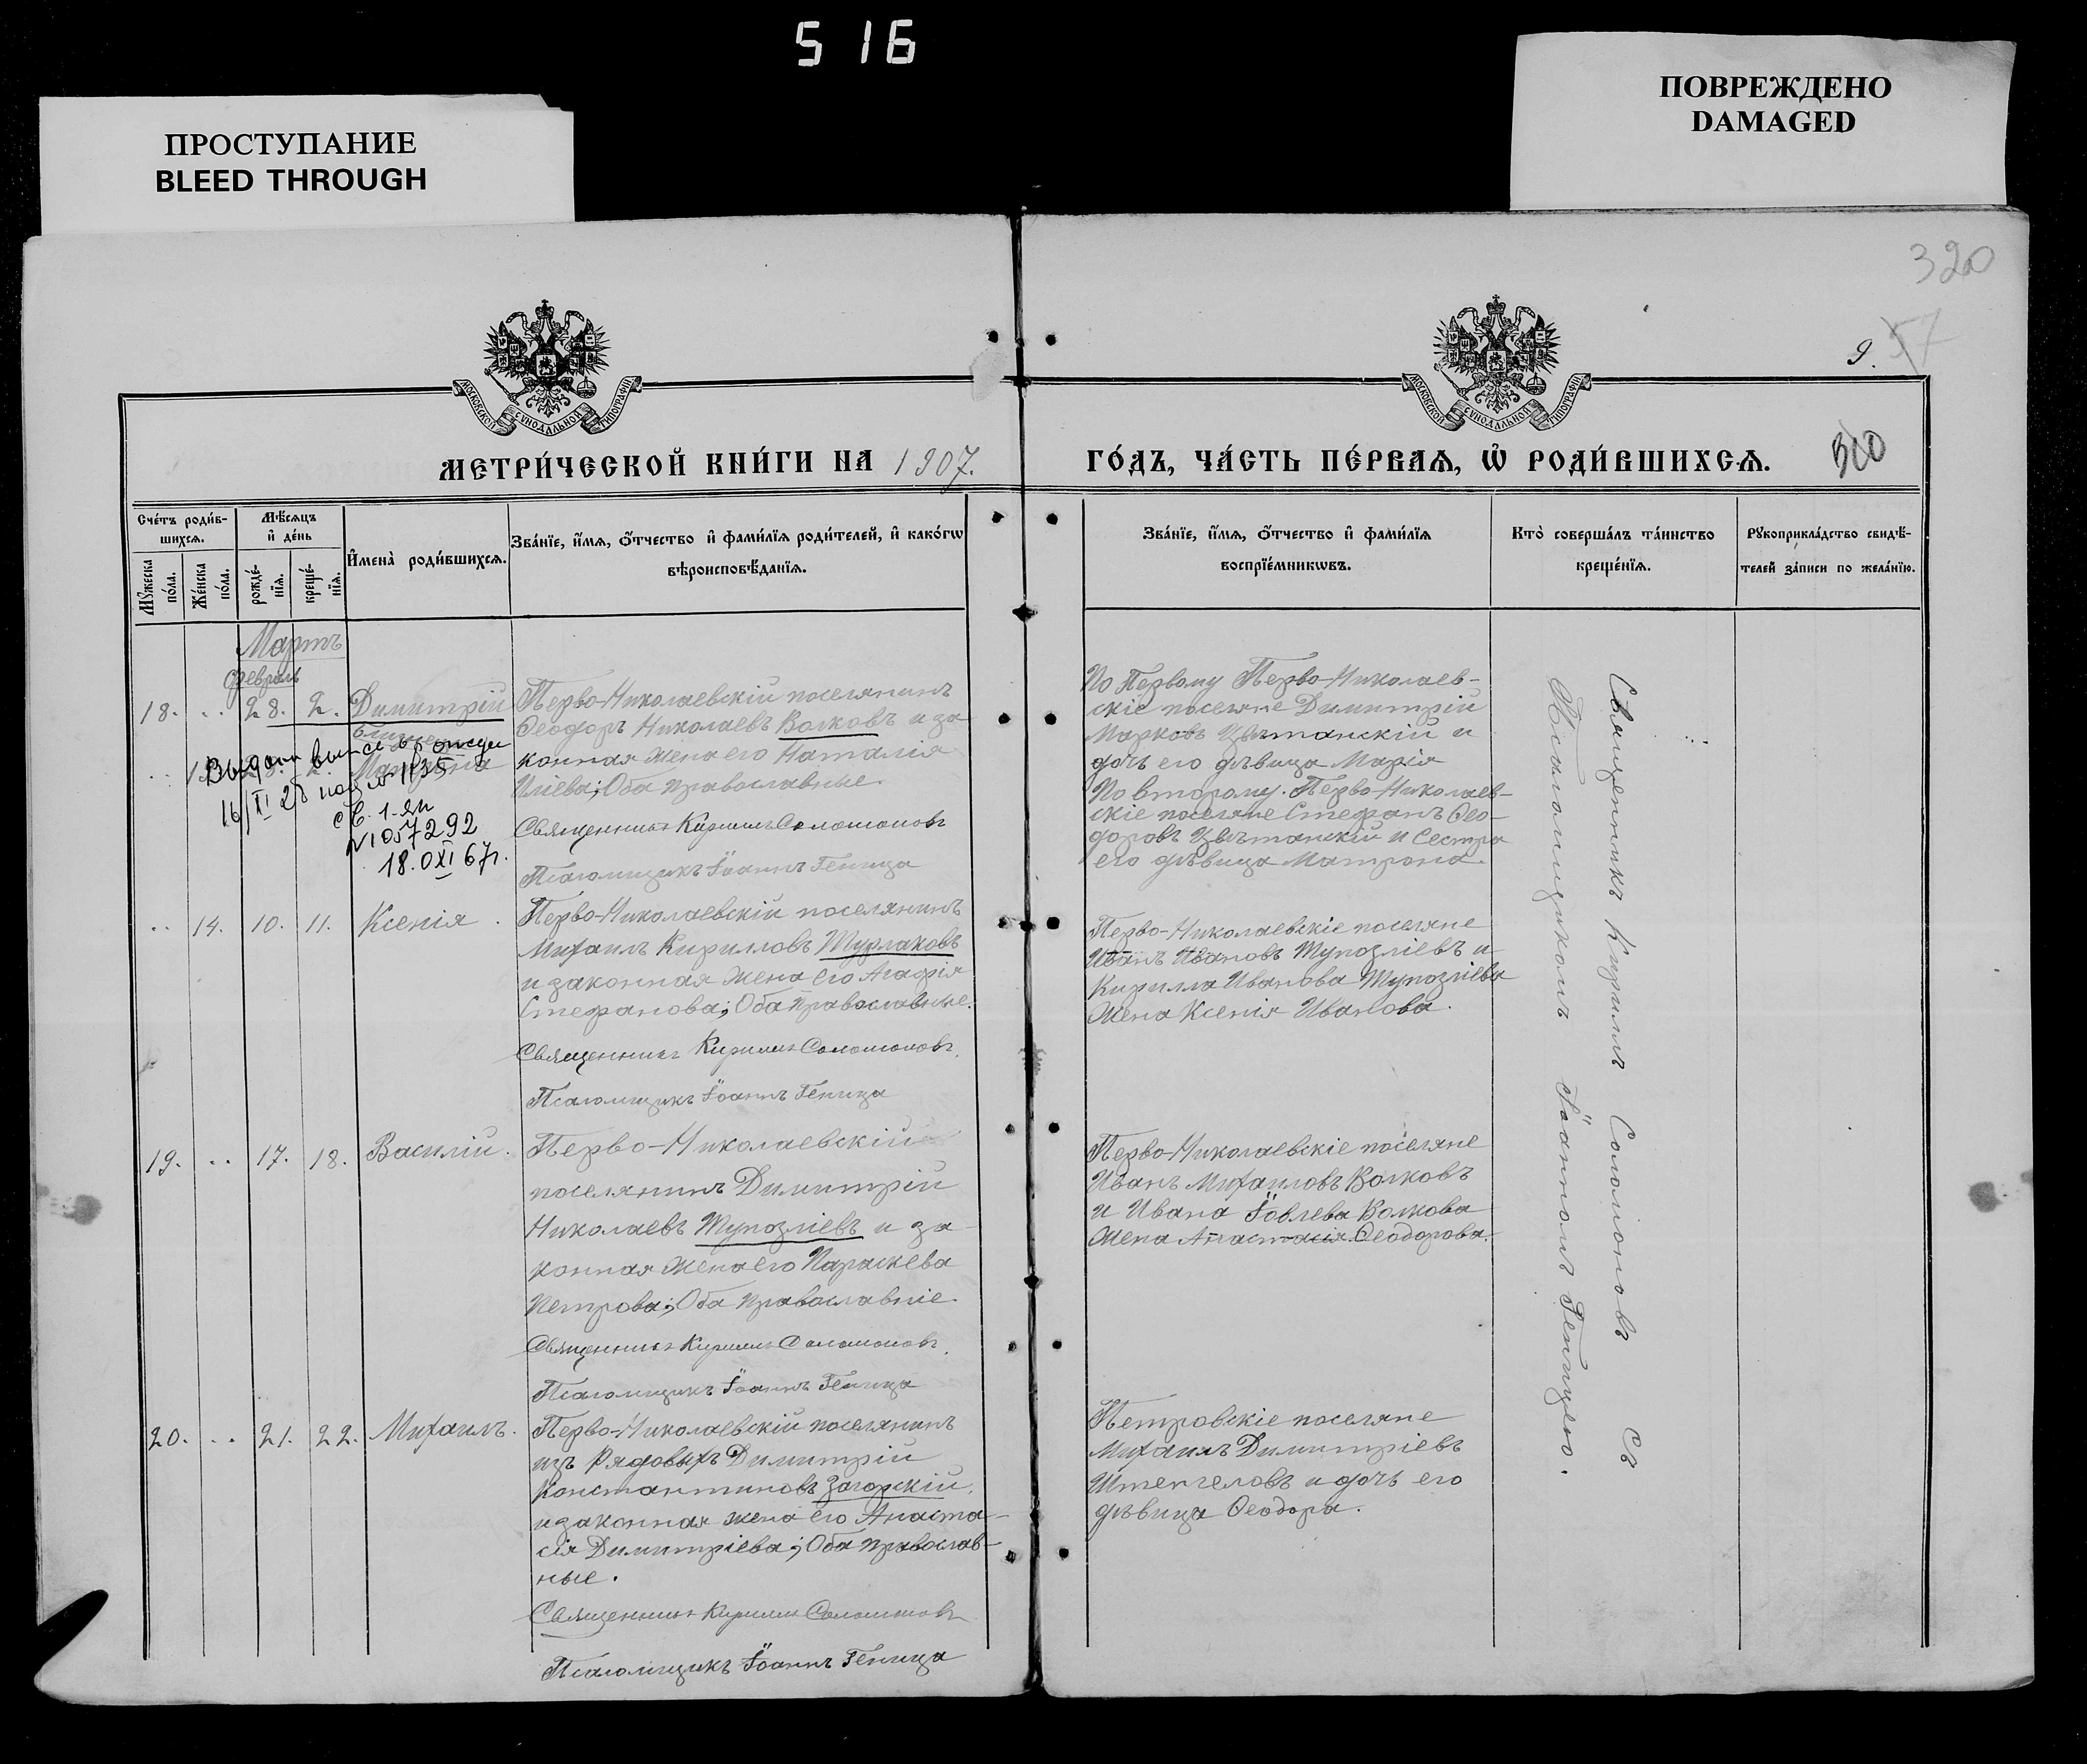 516
ПРОСТУПАНИЕ
BLEED THROUGH
ПОВРЕЖДЕНО
DAMAGED
320
9.
57
МОСКОВСКОЙ СѴНОДАЛЬНОЙ ТИПОГРАФІИ
МОСКОВСКОЙ СѴНОДАЛЬНОЙ ТИПОГРАФІИ
МЕТРИ́ЧЕСКОЙ КНИ́ГИ НА 1907.
ГО́ДЪ, ЧА́СТЬ ПЕ́РВАѦ, Ѡ҆ РОДИ́ВШИХСѦ.
Сче́тъ роди́в-
шихсѧ.
Мꙋ́жеска
по́ла.
Же́нска
по́ла.
Мѣ́сѧцъ
и҆ де́нь
рожде́-
нїѧ.
креще́-
нїѧ.
И҆мена̀ роди́вшихсѧ.
Зва́нїе, и҆́мѧ, ѻ҆́тчество и҆ фами́лїѧ роди́телей, и҆ како́гѡ
вѣроисповѣ́данїѧ.
Зва́нїе, и҆́мѧ, ѻ҆́тчество и҆ фами́лїѧ
воспрїе́мникѡвъ.
Кто̀ соверша́лъ та́инство
креще́нїѧ.
Рꙋкоприкла́дство свидѣ́-
телей за́писи по жела́нїю.
Мартъ
Февраль
18. .. 28. 2. Димитрій
Перво-Николаевскій поселянинъ
Ѳеодоръ Николаевъ Волковъ и за-
конная жена его Наталія
Иліева; Оба православные.
Священникъ Кириллъ Соломоновъ
Псаломщикъ Іоаннъ Геница
По Первому Перво-Николаев-
скіе поселяне Димитрій
Марковъ Цвѣтанскій и
дочь его дѣвица Марія
По второму. Перво-Николаев-
скіе поселяне Стефанъ Ѳео-
доровъ Цвѣтанскій и Сестра
его дѣвица Матрона.
N 1135
N 1057292
18.XI 67г.
.. 14. 10. 11. Ксенія.
Перво-Николаевскій поселянинъ
Михаилъ Кирилловъ Турлаковъ
и законная жена его Агафія
Стефанова; Оба православные.
Священникъ Кириллъ Соломоновъ.
Псаломщикъ Іоаннъ Геница
Перво-Николаевскіе поселяне
Иванъ Ивановъ Тупозліевъ и
Кирилла Иванова Тупозліева
жена Ксенія Иванова.
19. .. 17. 18. Василій.
Перво-Николаевскій
поселянинъ Димитрій
Николаевъ Тупозліевъ и за-
конная жена его Параскева
Петрова; Оба православніе.
Священникъ Кириллъ Соломоновъ.
Псаломщикъ Іоаннъ Геница
Перво-Николаевскіе поселяне
Иванъ Михаиловъ Волковъ
и Ивана Іовлева Волкова
жена Анастасія Ѳеодорова.
20. .. 21. 22. Михаилъ.
Перво-Николаевскій поселянинъ
изъ Рядовыхъ Димитрій
Константиновъ Загорскій,
и законная жена его Анаста-
сія Димитріева; Оба православ-
ные.
Священникъ Кириллъ Соломоновъ
Псаломщикъ Іоаннъ Геница
Петровскіе поселяне
Михаилъ Димитріевъ
Штенгеловъ и дочь его
дѣвица Ѳеодора.
Священникъ Кириллъ Соломоновъ съ
Псаломщикомъ Іоанномъ Геницею.